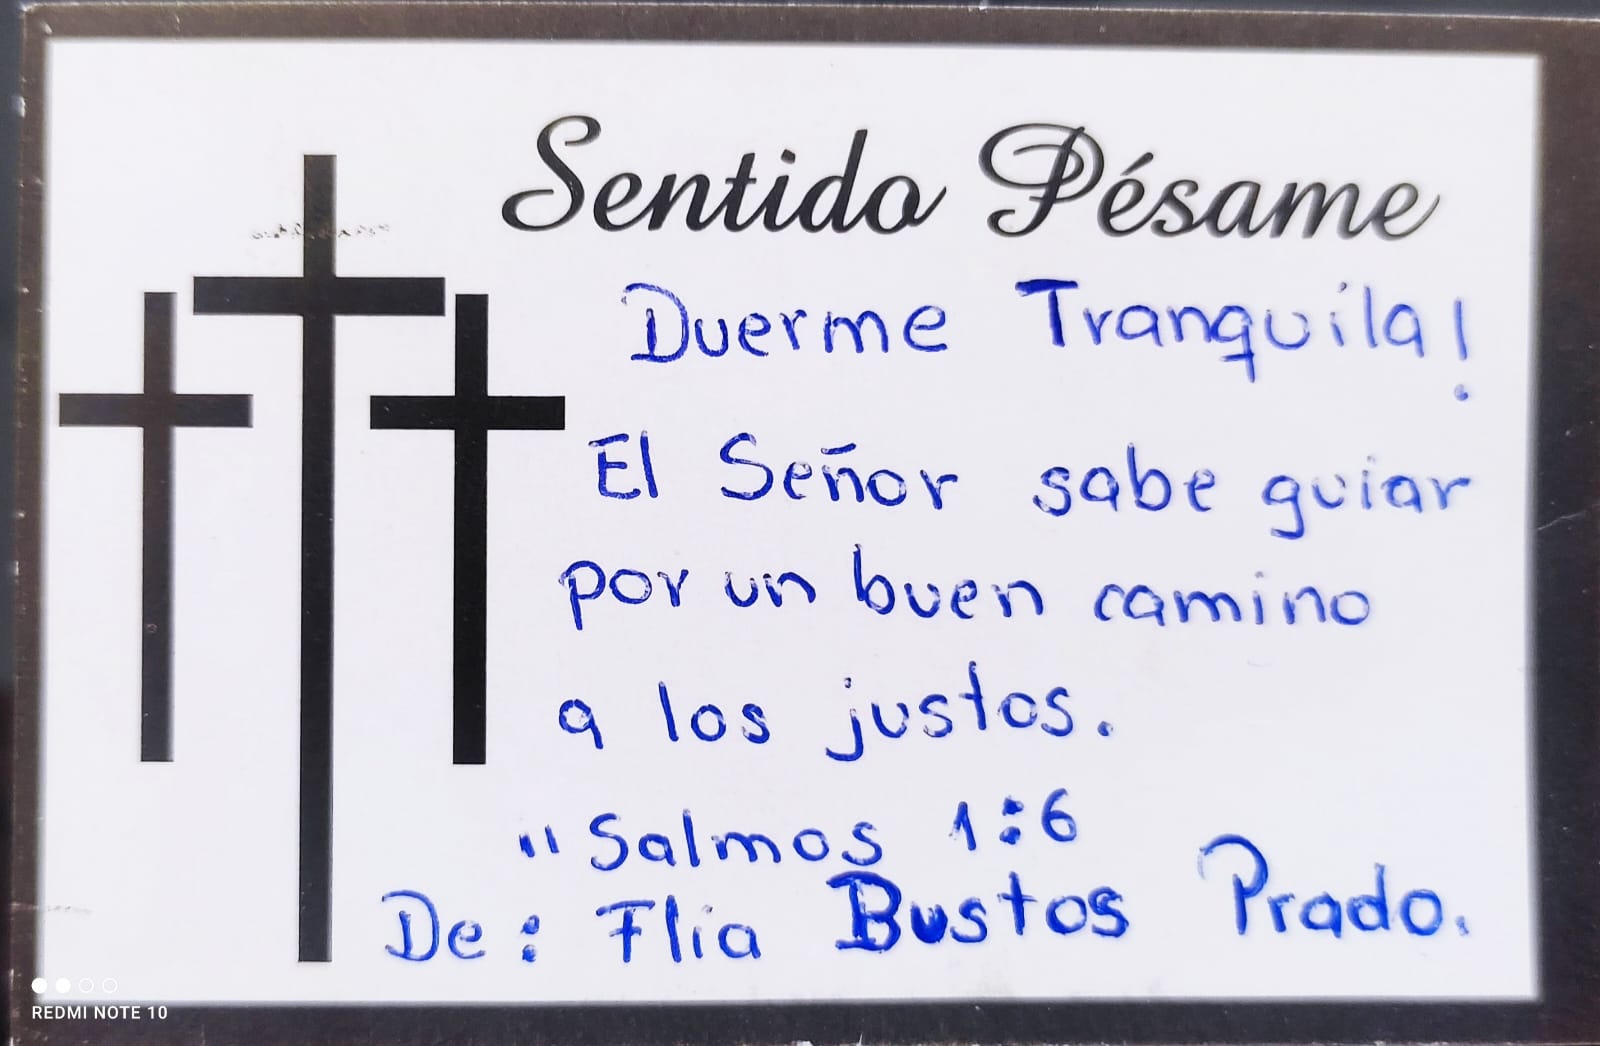 Sentido Pésame
Duerme Tranquila!
El Señor sabe guiar
por un buen camino
a los justos.
"Salmos 1:6
De: Flia Bustos Prado.
REDMI NOTE 10